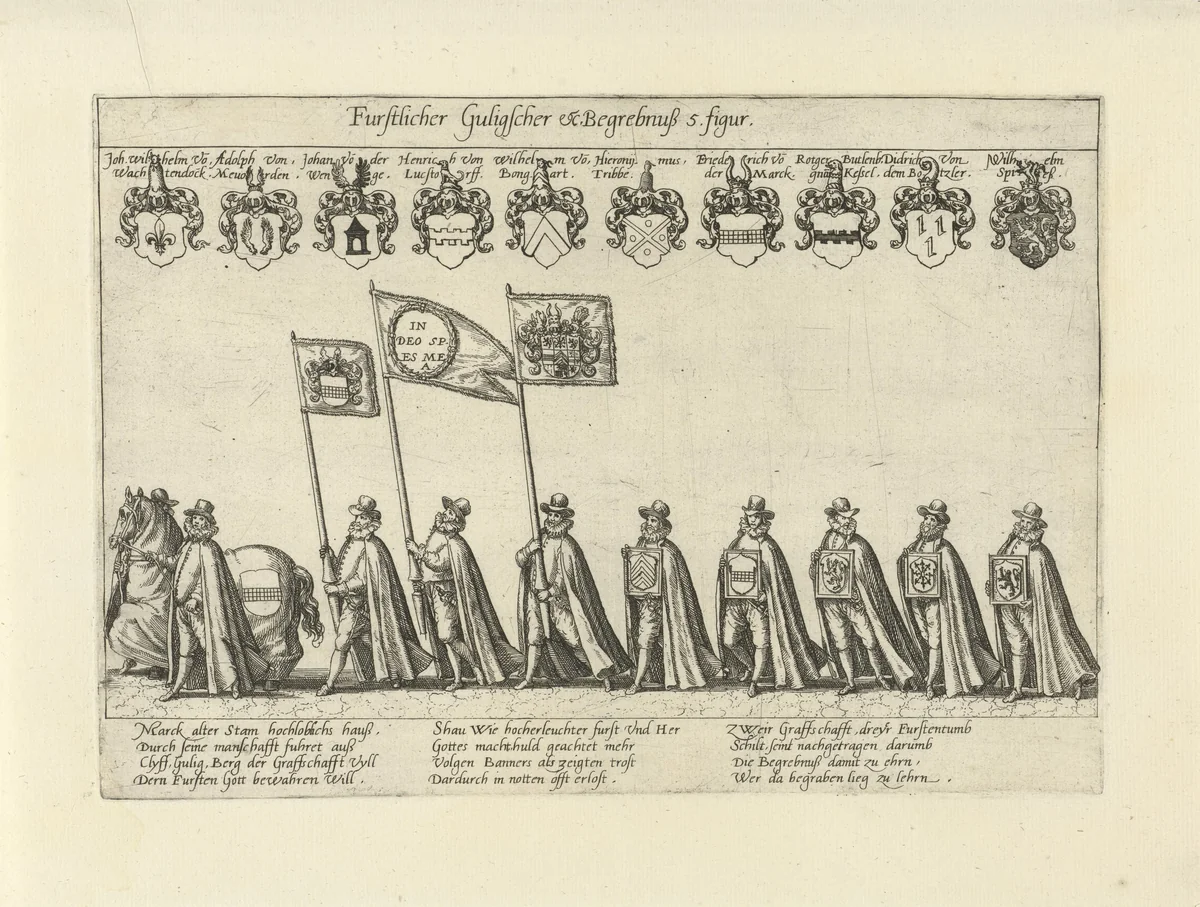 Furstlicher Guligscher &c. Begrebnuß 5. figur.
Joh. Wilhelm Vō, Adolph von, Johan vō der Henrich von Wilhelm vō, Hieronÿmus, Friederich vō Rotger Butlenb. Didrich Von Wilhelm
Wachtendock. Wenge. Bongart. Tribbe. der Marck. Keßel. dem Botzler.
IN
DEO SP-
ES ME
A
Marck alter Stam hochloblichs hauß,
Durch seine manschafft fuhret auß
Clyff, Gulig, Berg der Graffschafft Vyll
Dern Fursten Gott bewahren Will.
Shau Wie hocherleuchter furst Und Her
Gottes machthuld geachtet mehr
Volgen Banners als zeigten trost
Dardurch in notten offt erlost.
ZWeir Graffschafft, dreyr Furstentumb
Schilt, seint nachgetragen darumb
Die Begrebnuß damit zu ehrn,
Wer da begraben lieg zu lehrn.